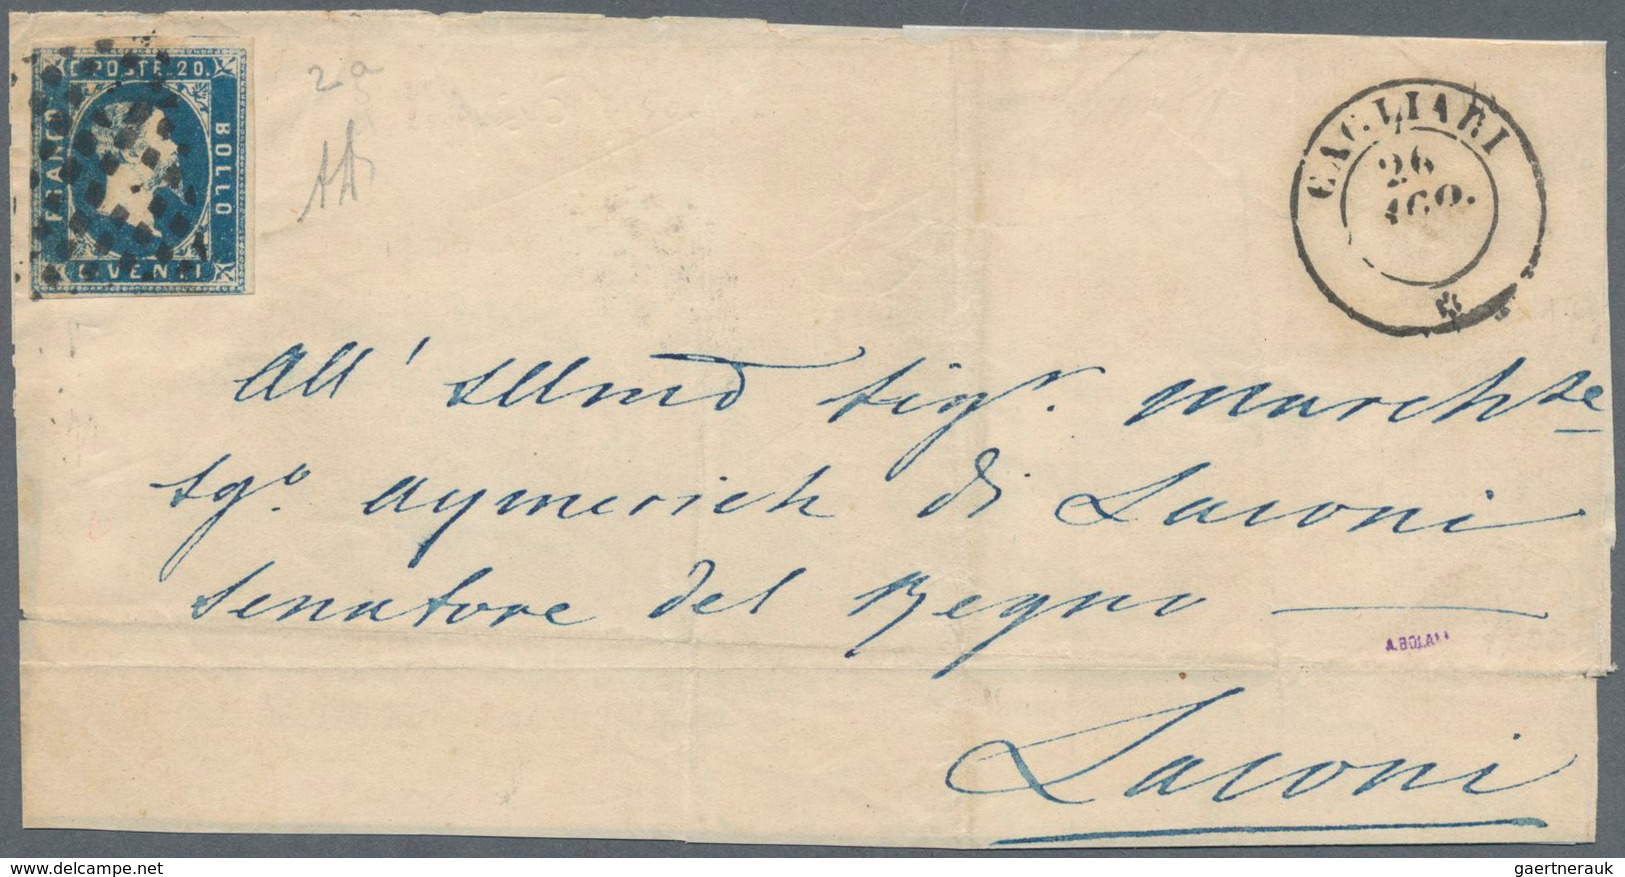 C. POSTE 20.
FRANCO
BOLLO
C. VENTI
2a
CAGLIARI
26
AGO.
All' Illmo Sigr. Marchte
Sgo. Aymerich di Laconi
Senatore del Regno
A.BOLA
Laconi
gaertnerauk